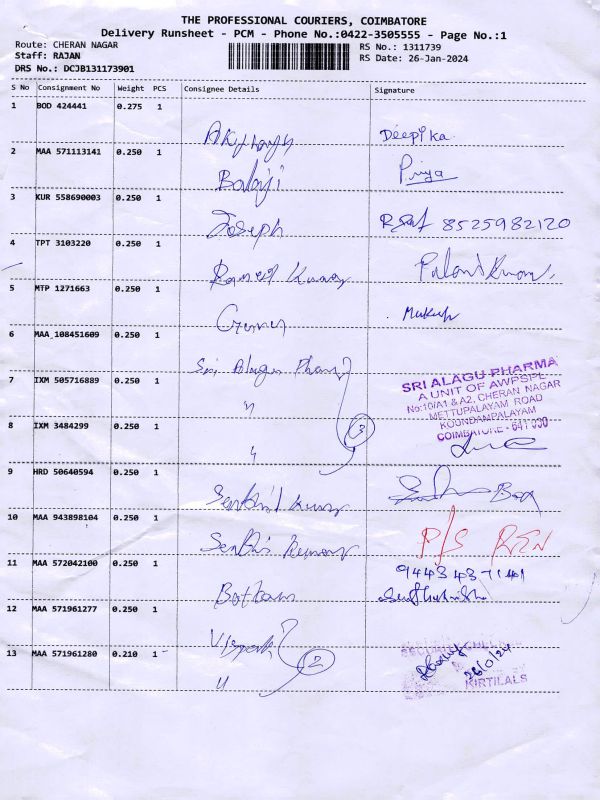 THE PROFESSIONAL COURIERS, COIMBATORE
Delivery Runsheet - PCM - Phone No.:0422-3505555 - Page No.:1
Route: CHERAN NAGAR RS No.: 1311739
Staff: RAJAN RS Date: 26-Jan-2024
DRS No.: DCJB131173901
S No Consignment No Weight PCS Consignee Details Signature
1 BOD 424441 0.275 1
Deepika
2 MAA 571113141 0.250 1
Balaji Priya
3 KUR 558690003 0.250 1
Joseph 8525982120
4 TPT 3103220 0.250 1
Ramesh Kumar
5 MTP 1271663 0.250 1
6 MAA 108451609 0.250 1
Sri Alagu Pharma
SRI ALAGU PHARMA
A UNIT OF AWPSPL
7 IXM 505716889 0.250 1
"
No:10/A1 & A2, CHERAN NAGAR
METTUPALAYAM ROAD
KOUNDAMPALAYAM
COIMBATORE - 641 030
8 IXM 3484299 0.250 1
" 3
9 HRD 50640594 0.250 1
Senthil Kumar
10 MAA 943898104 0.250 1
Senthil Kumar P/S
11 MAA 572042100 0.250 1
9443437141
12 MAA 571961277 0.250 1
13 MAA 571961280 0.210 1
" 2
26/0/24
KIRTILALS